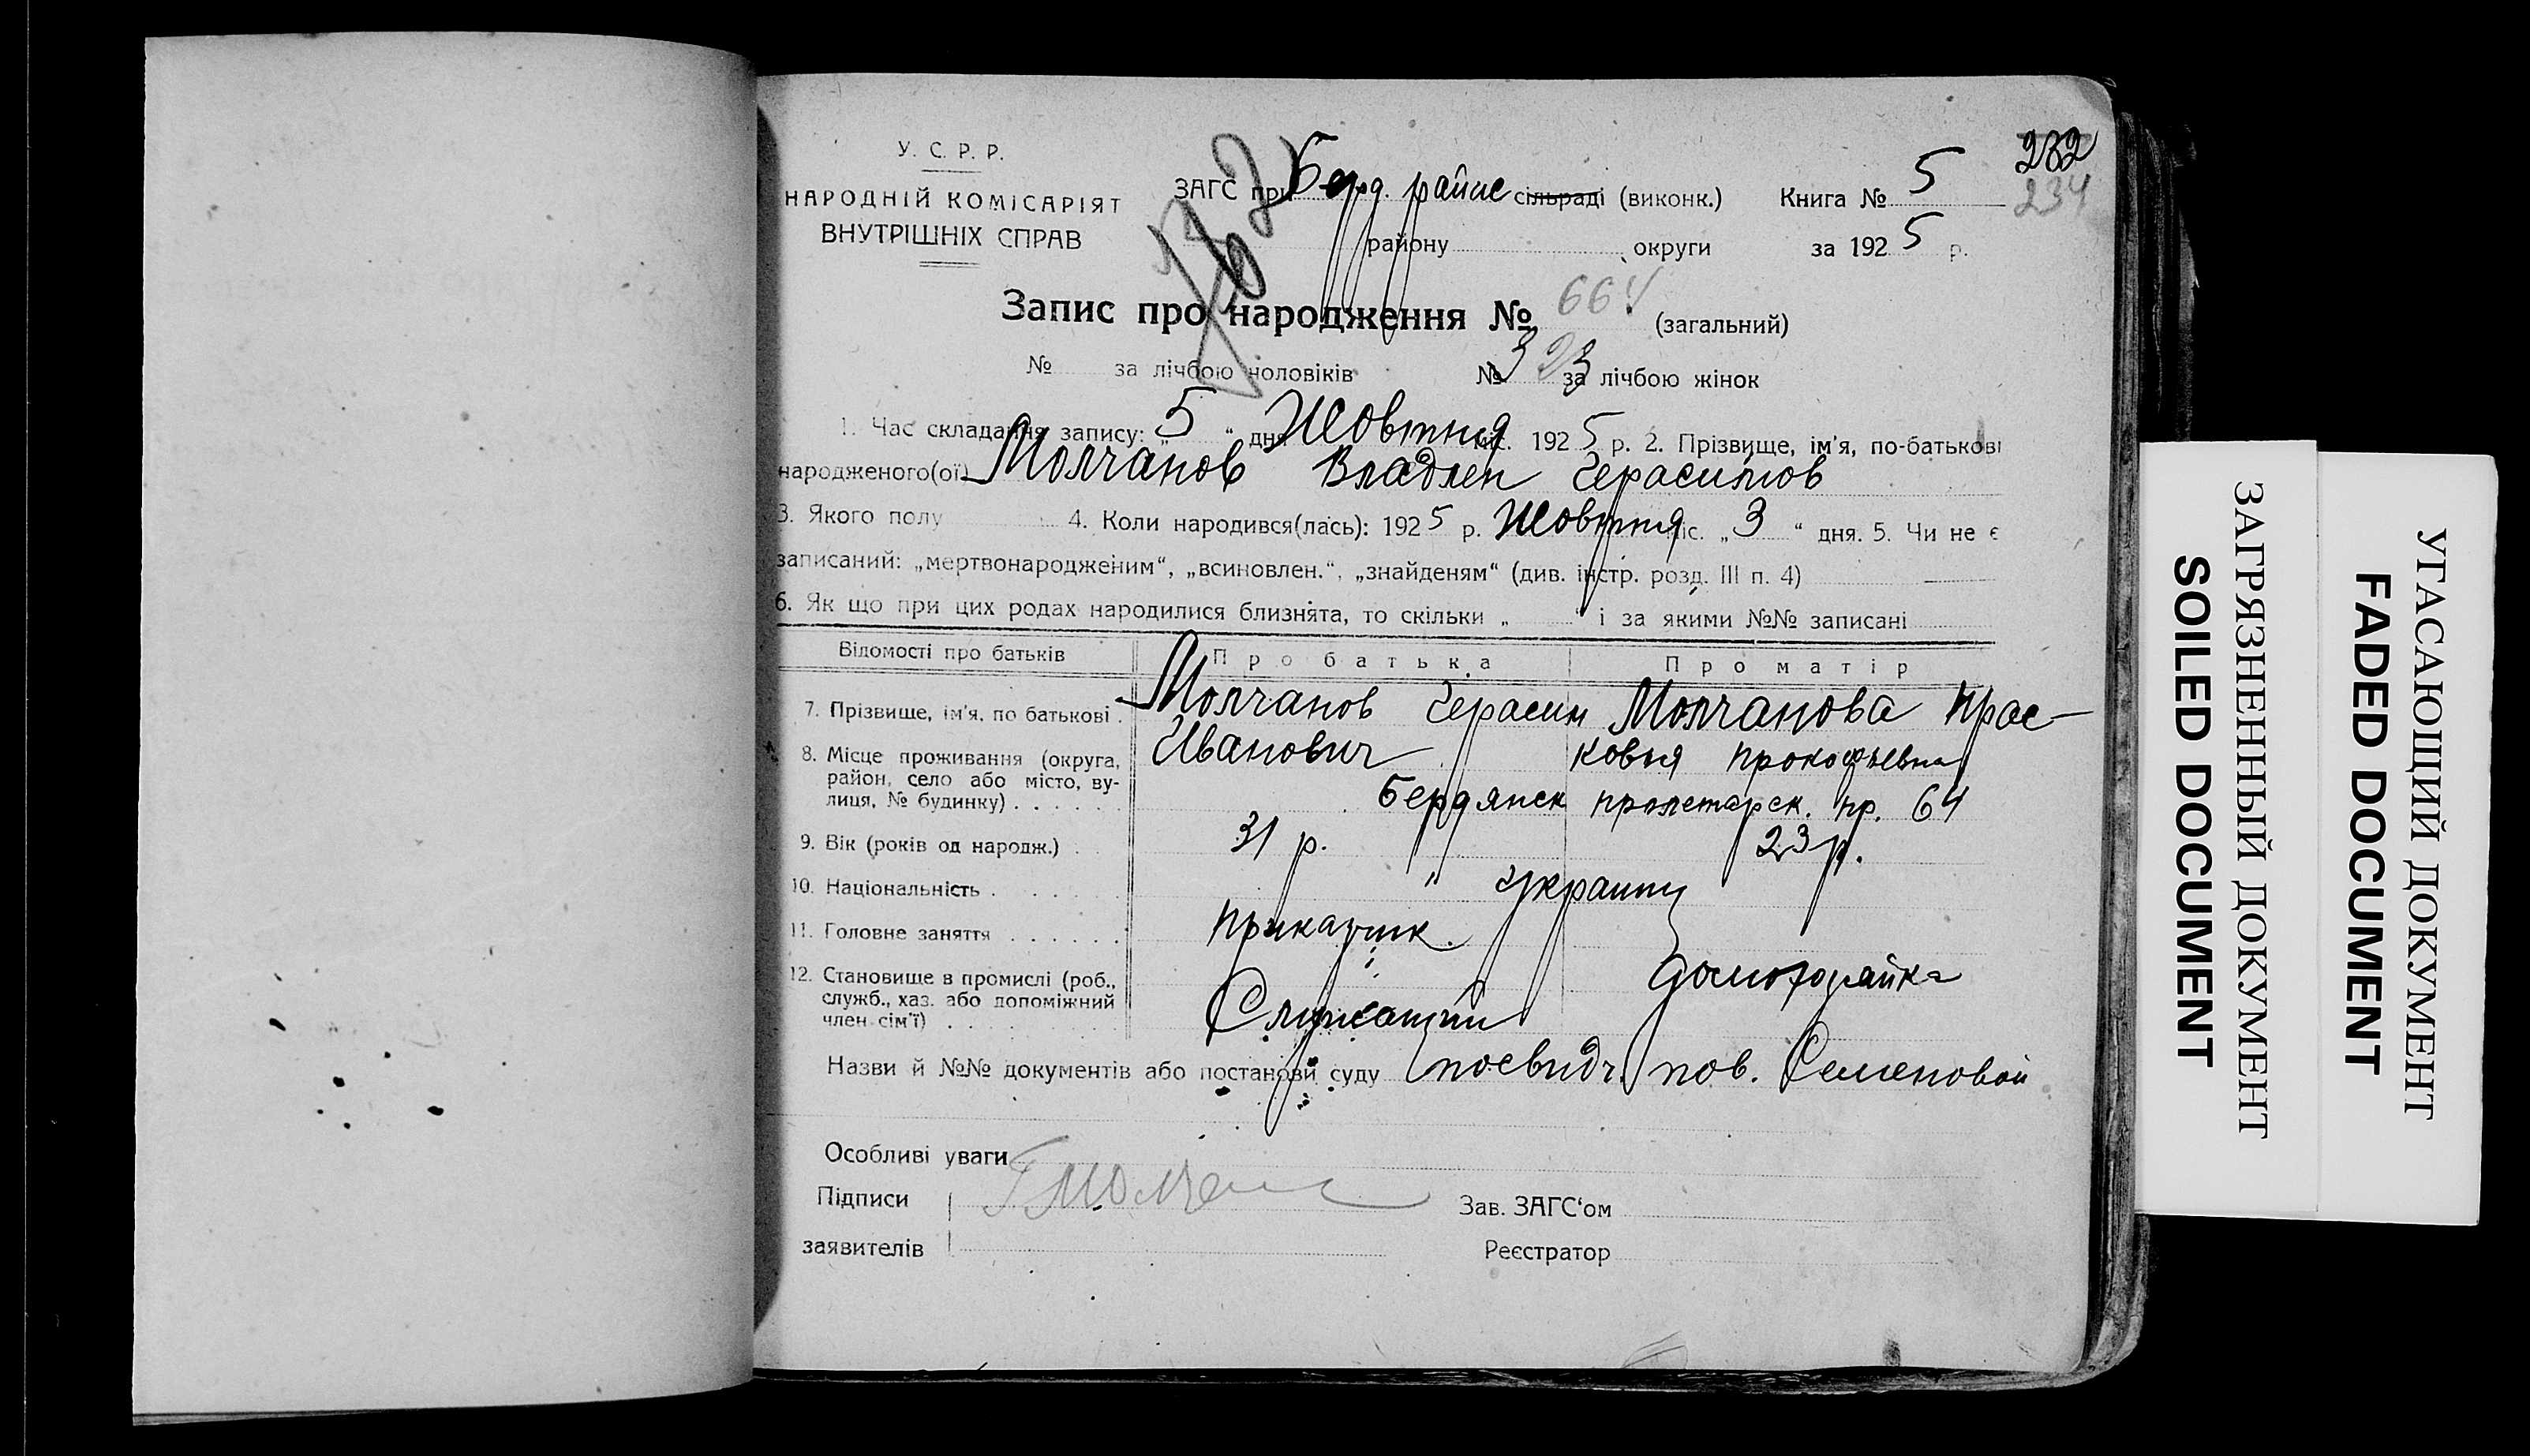 232
У. С. Р. Р.
ЗАГС при Берд. райис сільраді (виконк.) Книга № 5
234
НАРОДНІЙ КОМІСАРІЯТ
ВНУТРІШНІХ СПРАВ
району округи за 1925 р.
Запис про народження № 664 (загальний)
№ за лічбою чоловіків № 323 за лічбою жінок
1. Час складання запису: „5“ дня Жовтня міс. 1925 р. 2. Прізвище, ім'я, по-батькові
народженого(ої) Молчанов Владлен Герасимов
3. Якого полу 4. Коли народився(лась): 1925 р. Жовтня міс. „3“ дня. 5. Чи не є
записаний: „мертвонародженим“, „всиновлен.“, „знайденям“ (див. інстр. розд. III п. 4)
6. Як що при цих родах народилися близнята, то скільки „ “ і за якими №№ записані
Відомості про батьків Про батька Про матір
7. Прізвище, ім'я, по батькові . Молчанов Герасим Молчанова Прас-
Иванович ковья Прокофьевна
8. Місце проживання (округа,
район, село або місто, ву-
лиця, № будинку) . . . . . . Бердянск пролетарск. пр. 64
9. Вік (років од народж.) . 31 р. 23 р.
10. Національність . . . . . . " Украинц
11. Головне заняття . . . . . . Приказчик.
12. Становище в промислі (роб.,
служб., хаз. або допоміжний
член сім'ї) . . . . . . Служащий домохозяйка
Назви й №№ документів або постанови суду посвидч. пов. Семеновой
Особливі уваги
Підписи
заявителів
Зав. ЗАГС'ом
Реєстратор
ЗАГРЯЗНЕННЫЙ ДОКУМЕНТ
SOILED DOCUMENT
УГАСАЮЩИЙ ДОКУМЕНТ
FADED DOCUMENT